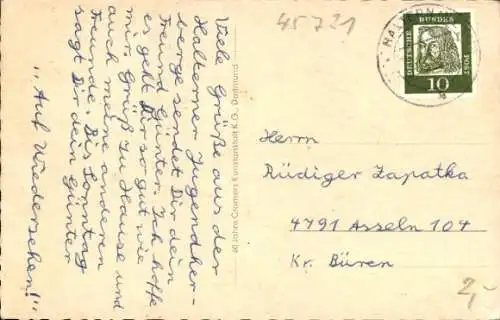 Viele Grüße aus der
Halterner Jugendher-
berge sendet Dir dein
Freund Günter. Ich hoffe
es geht Dir so gut wie
mir. Gruß zu Hause und
auch meine anderen
Freunde. Bis Sonntag
sagt Dir dein Günter
„Auf Wiedersehen!"
40 Jahre Cramers Kunstanstalt K.G., Dortmund
45721
HALTERN
DEUTSCHE
BUNDES
POST
10
Herrn
Rüdiger Zapatka
4791 Asseln 104
Kr. Büren
2,-